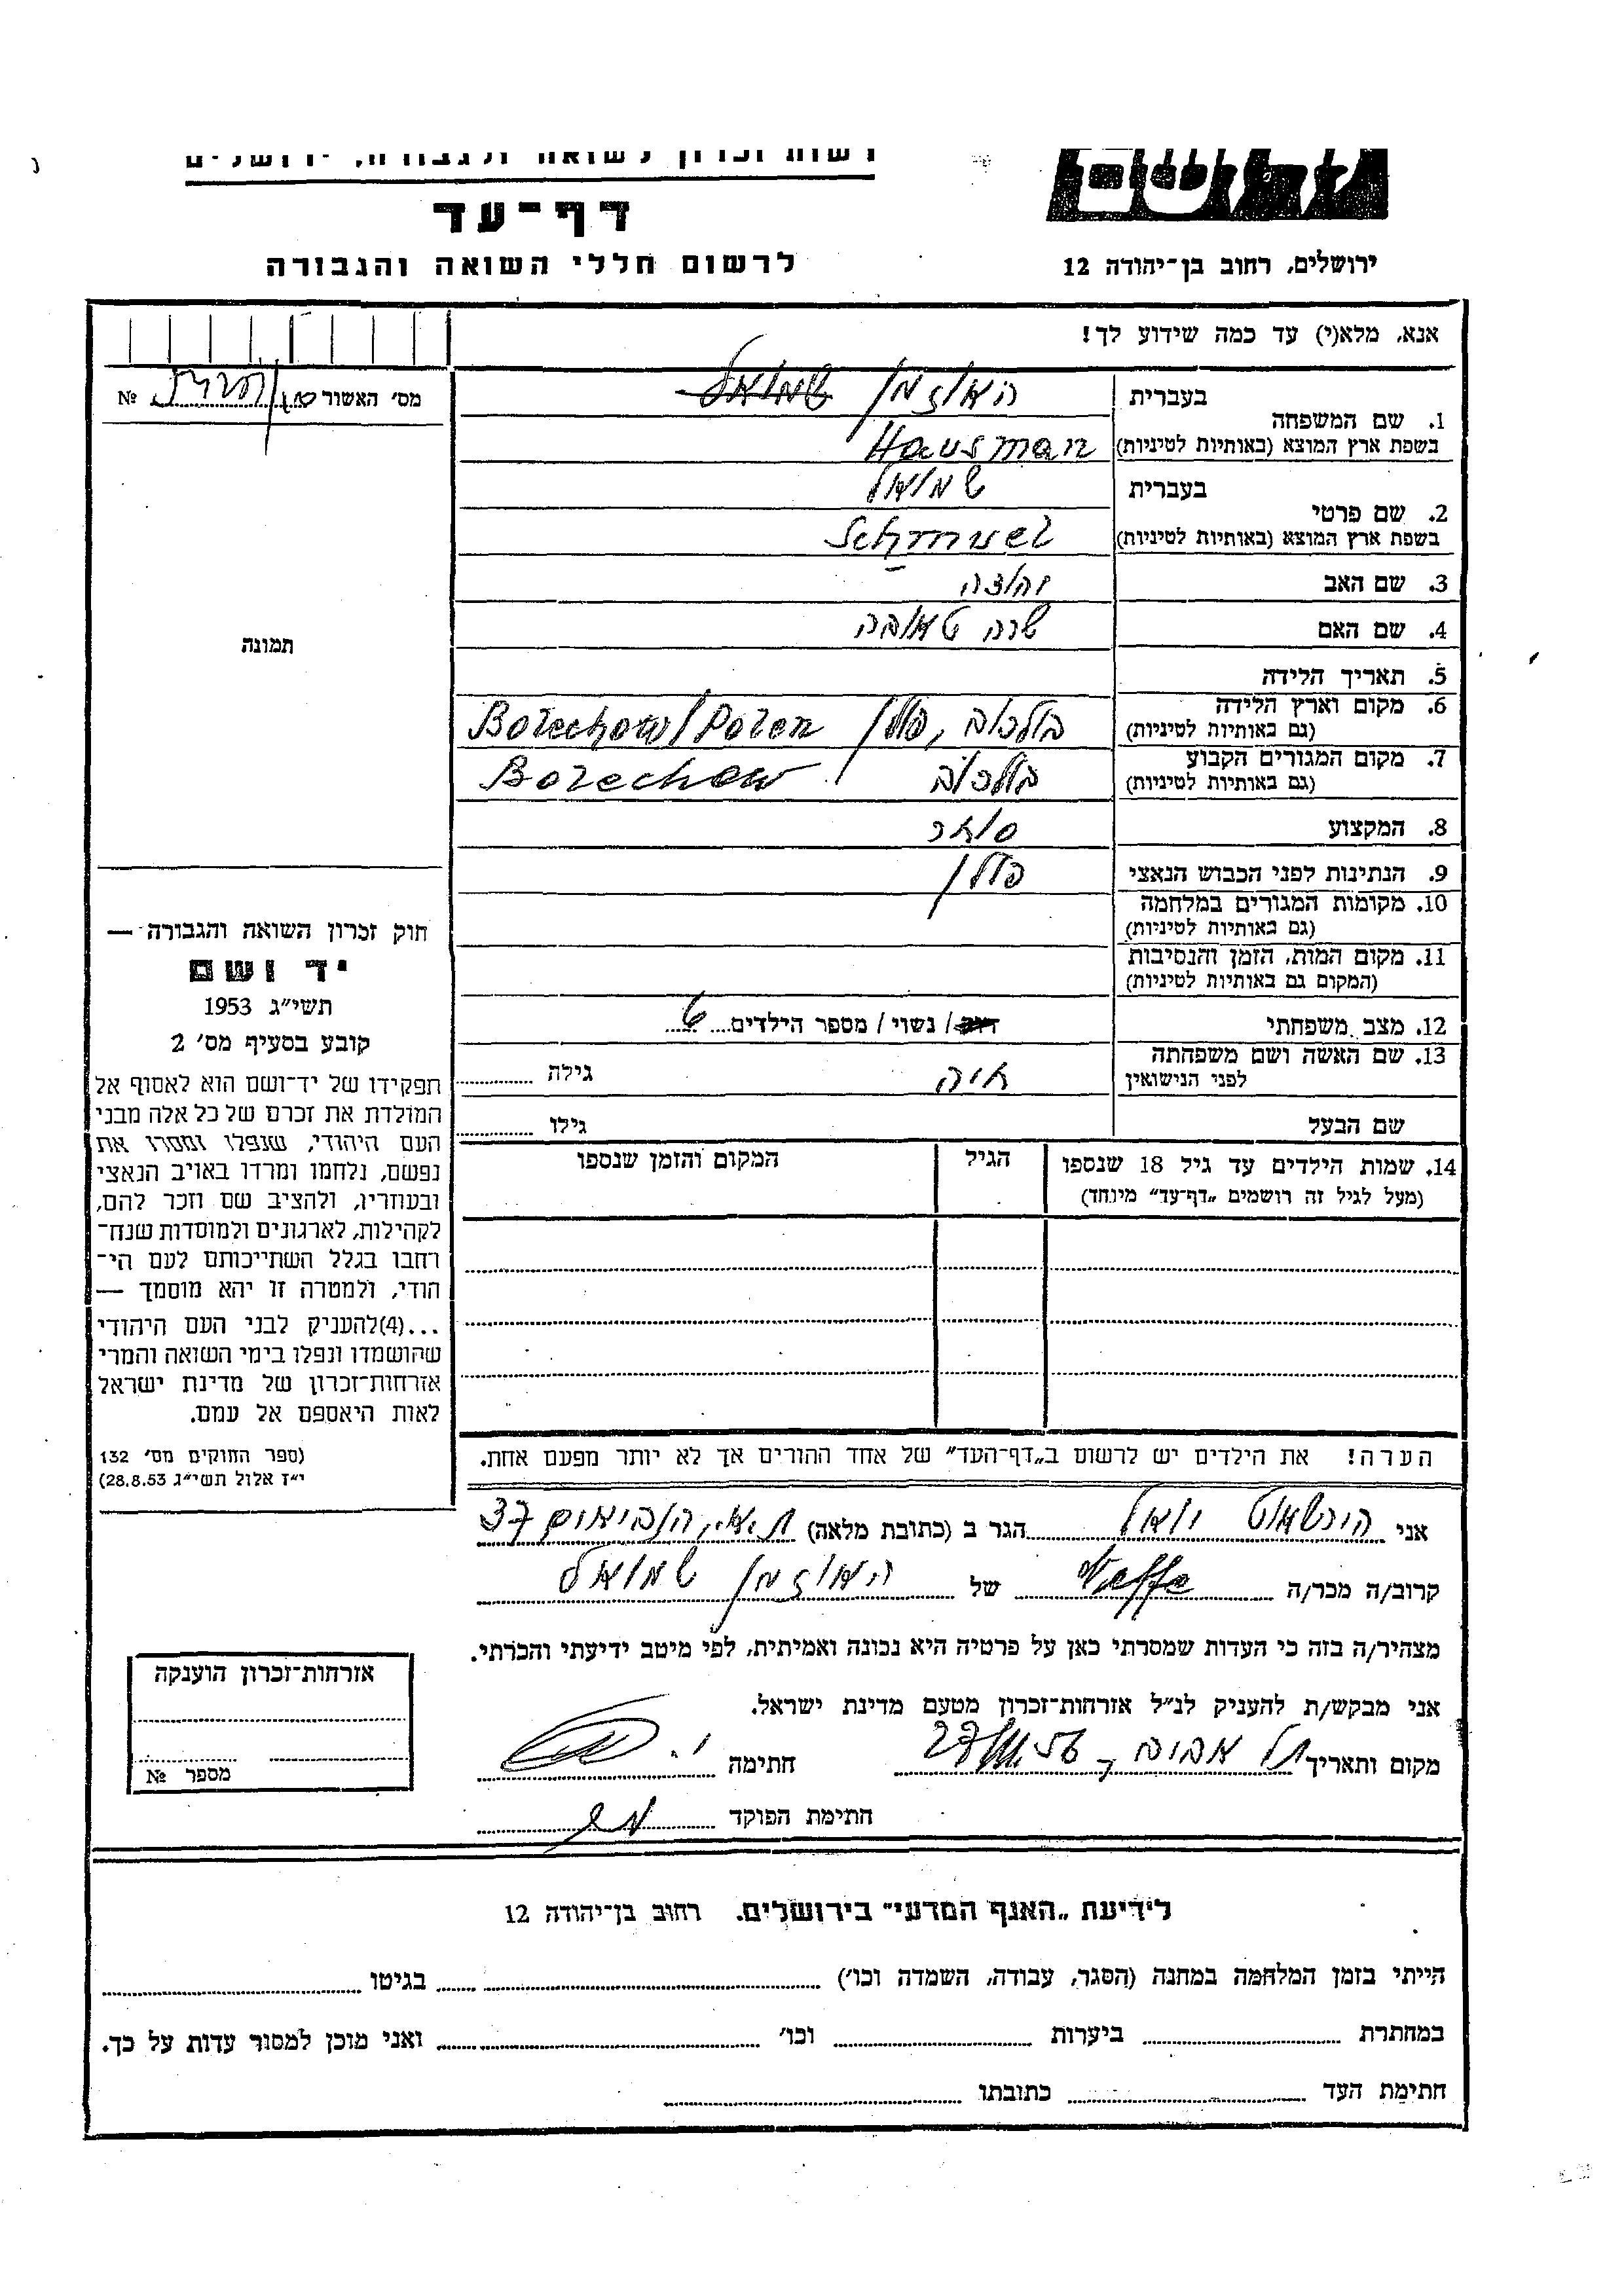 רשות זכרון לשואה ולגבורה, ירושלים
דף-עד
לרשום חללי השואה והגבורה
ירושלים, רחוב בן-יהודה 12
אנא, מלא(י) עד כמה שידוע לך!
מס' האשור №
תמונה
1. שם המשפחה
בעברית האוזמן שמואל
בשפת ארץ המוצא (באותיות לטיניות) Hausman
2. שם פרטי
בעברית שמואל
בשפת ארץ המוצא (באותיות לטיניות) Schmuel
3. שם האב
4. שם האם שרה טאובה
5. תאריך הלידה
6. מקום וארץ הלידה בולכוב, פולין Bolechow/Polen
(גם באותיות לטיניות)
7. מקום המגורים הקבוע בולכוב Bolechow
(גם באותיות לטיניות)
8. המקצוע סוחר
9. הנתינות לפני הכבוש הנאצי פולין
10. מקומות המגורים במלחמה
(גם באותיות לטיניות)
11. מקום המות, הזמן והנסיבות
(המקום גם באותיות לטיניות)
12. מצב משפחתי רווק / נשוי / מספר הילדים 6
13. שם האשה ושם משפחתה
לפני הנישואין חיה גילה
שם הבעל גילו
14. שמות הילדים עד גיל 18 שנספו הגיל המקום והזמן שנספו
(מעל לגיל זה רושמים „דף-עד" מיוחד)
הערה! את הילדים יש לרשום ב„דף-העד" של אחד ההורים אך לא יותר מפעם אחת.
חוק זכרון השואה והגבורה —
יד ושם
תשי"ג 1953
קובע בסעיף מס' 2
תפקידו של יד-ושם הוא לאסוף אל
המולדת את זכרם של כל אלה מבני
העם היהודי, שנפלו ומסרו את
נפשם, נלחמו ומרדו באויב הנאצי
ובעוזריו, ולהציב שם וזכר להם,
לקהילות, לארגונים ולמוסדות שנח-
רבו בגלל השתייכותם לעם הי-
הודי, ולמטרה זו יהא מוסמך —
...(4)להעניק לבני העם היהודי
שהושמדו ונפלו בימי השואה והמרי
אזרחות-זכרון של מדינת ישראל
לאות היאספם אל עמם.
(ספר החוקים מס' 132
י"ז אלול תשי"ג 28.8.53)
אני יואל הגר ב (כתובת מלאה) ת.א., הנביאים 37
קרוב/ה מכר/ה Neffe של האוזמן שמואל
מצהיר/ה בזה כי העדות שמסרתי כאן על פרטיה היא נכונה ואמיתית, לפי מיטב ידיעתי והכרתי.
אני מבקש/ת להעניק לנ"ל אזרחות-זכרון מטעם מדינת ישראל.
מקום ותאריך תל אביב חתימה
חתימת הפוקד
אזרחות-זכרון הוענקה
מספר №
לידיעת „האגף המדעי" בירושלים. רחוב בן-יהודה 12
הייתי בזמן המלחמה במחנה (הסגר, עבודה, השמדה וכו') בגיטו
במחתרת ביערות וכו' ואני מוכן למסור עדות על כך.
חתימת העד כתובתו